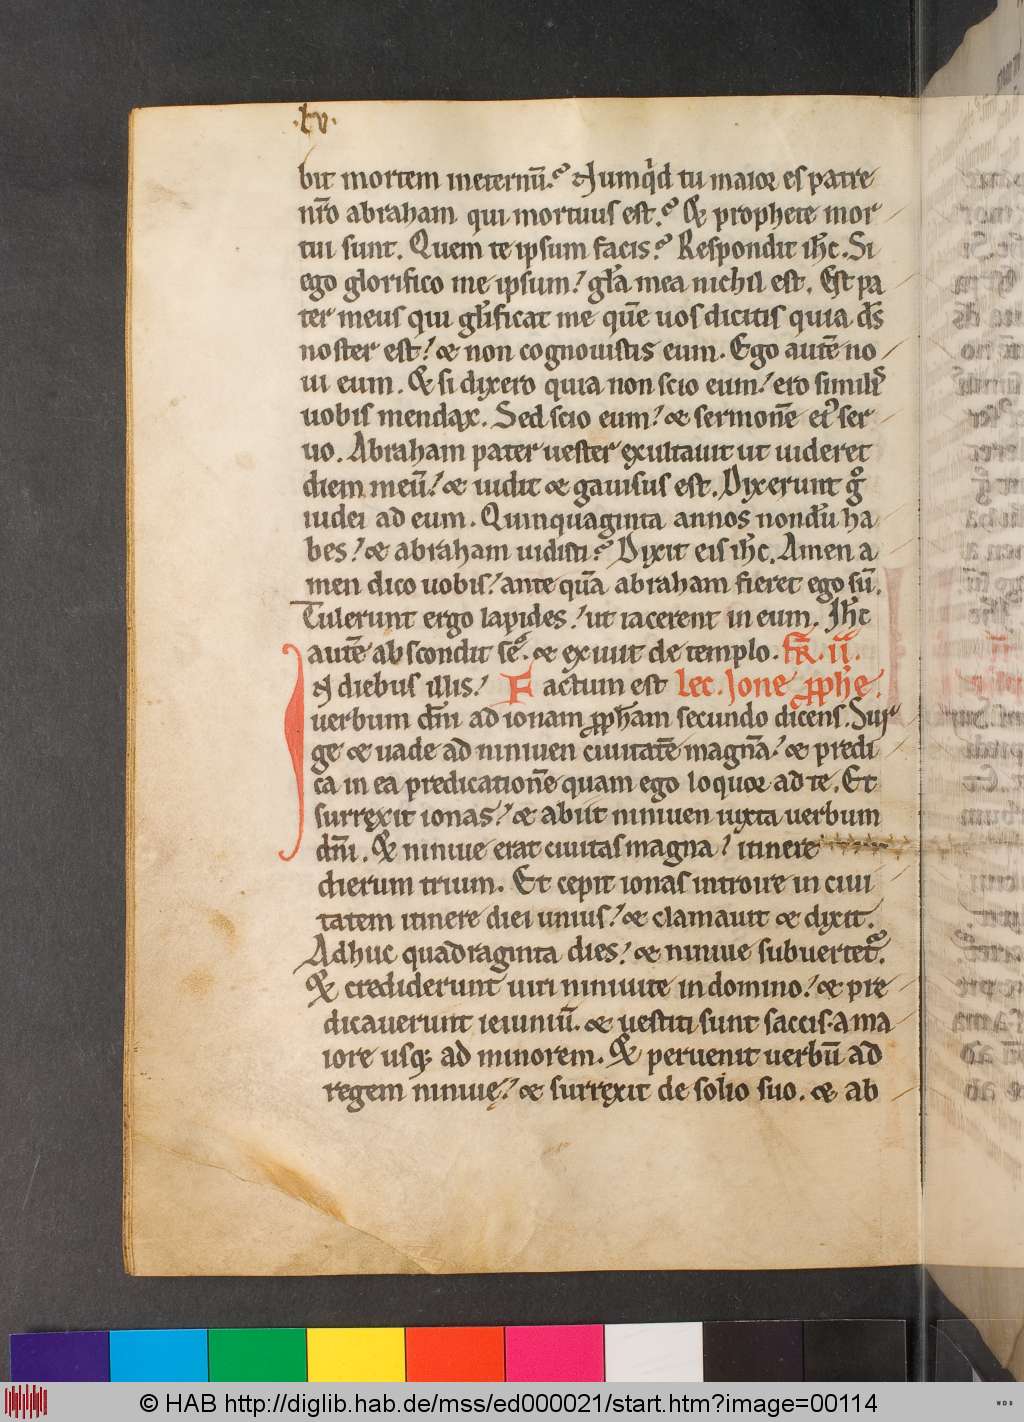 ·lv·
bit mortem ineternū.? Numqͥd tu maior es patre
nr̄o abraham qui mortuus est.? Et prophete mor
tui sunt. Quem te ipsum facis.? Respondit ih̄c. Si
ego glorifico me ipsum! gl̄a mea nichil est. Est pa
ter meus qui gl̄ificat me quē uos dicitis quia ds̄
noster est! & non cognouistis eum. Ego autē no
ui eum. Et si dixero quia non scio eum! ero simil̓
uobis mendax. Sed scio eum! & sermonē ei᷒ ser
uo. Abraham pater uester exultauit ut uideret
diem meū! & uidit & gauisus est. Dixerunt gͦ
iudei ad eum. Quinquaginta annos nondū ha
bes! & abraham uidisti? Dixit eis ih̄c. Amen a
men dico uobis! ante quā abraham fieret ego sū.
Tulerunt ergo lapides! ut iacerent in eum. Ih̄c
autē abscondit sē. & exiuit de templo. fr̄. ii.
N diebus illis! Factum est Lec. Ione ꝓph̄e.
uerbum dn̄i ad ionam ꝓph̄am secundo dicens. Sur
ge & uade ad niniuen ciuitatē magnā! & predi
ca in ea predicationē quam ego loquor ad te. Et
surrexit ionas! & abiit niniuen iuxta uerbum
dn̄i. Et niniue erat ciuitas magna! itinere
dierum trium. Et cepit ionas introire in ciui
tatem itinere diei unius! & clamauit & dixit.
Adhuc quadraginta dies! & niniue subuertet᷒.
Et crediderunt uiri niniuite in domino! & pre
dicauerunt ieiuniū. & uestiti sunt saccis. a ma
iore usq; ad minorem. Et peruenit uerbū ad
regem niniuę! & surrexit de solio suo. & ab
© HAB http://diglib.hab.de/mss/ed000021/start.htm?image=00114